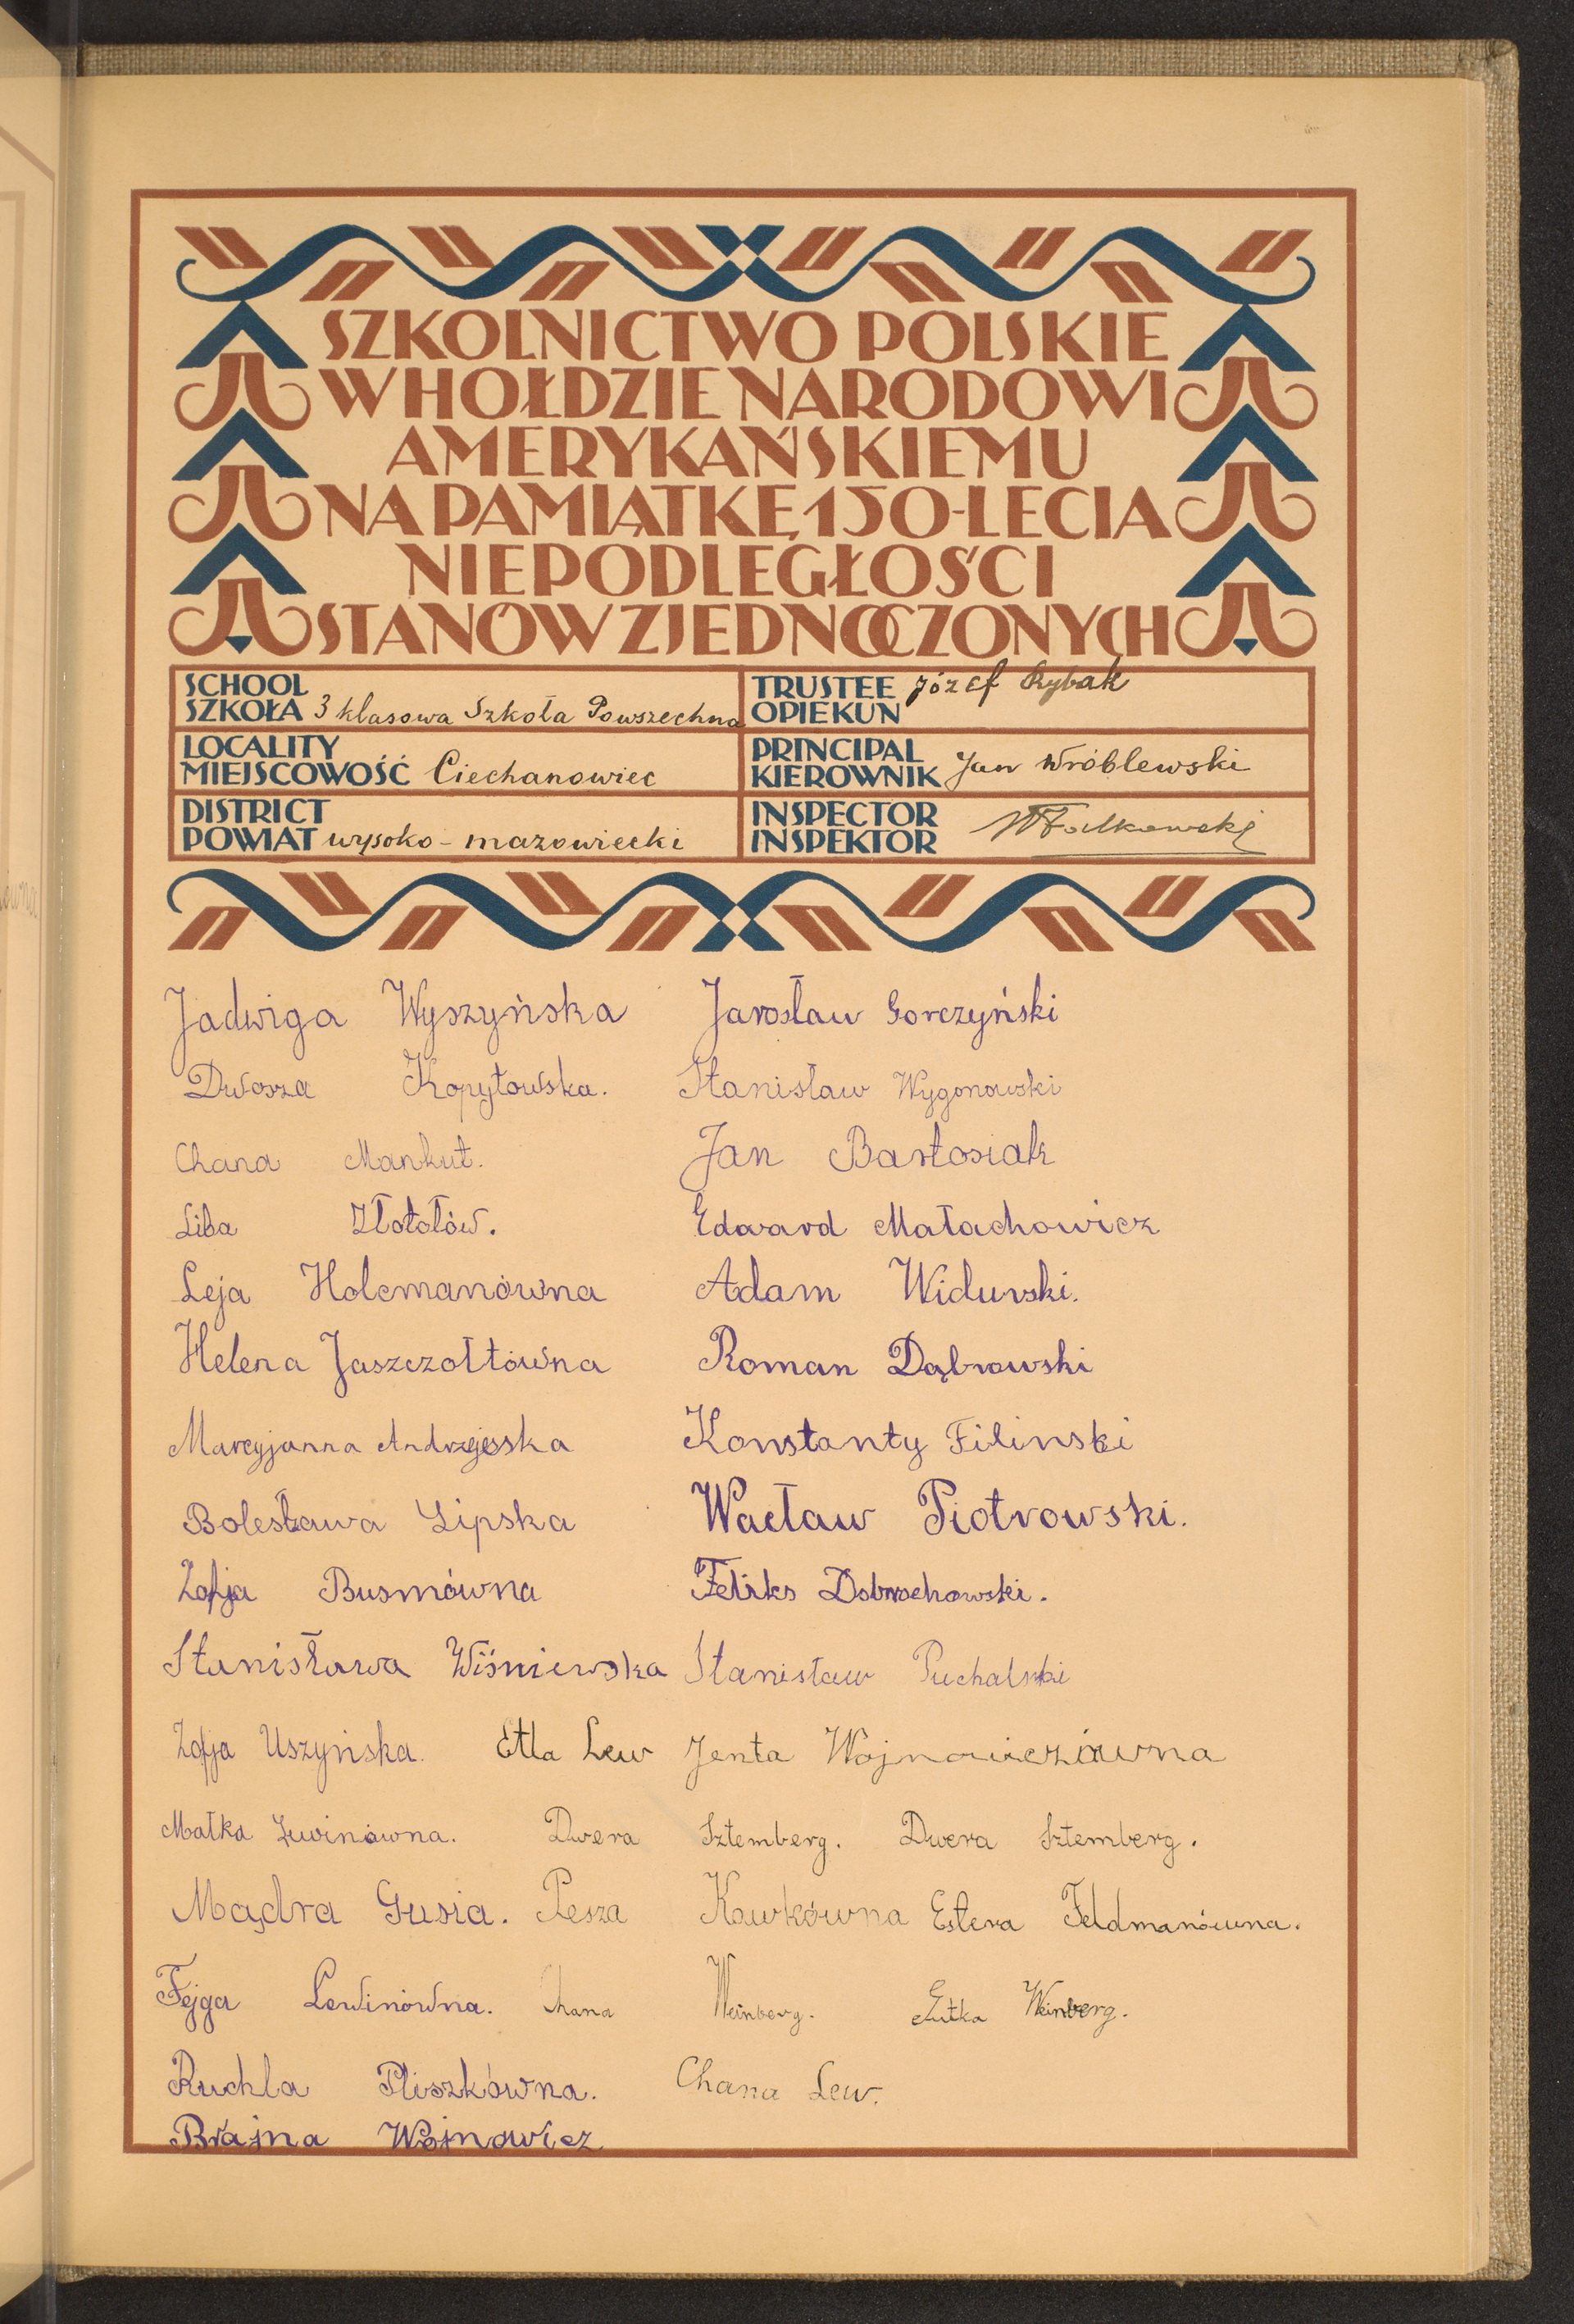 SZKOLNICTWO POLSKIE
W HOŁDZIE NARODOWI
AMERYKAŃSKIEMU
NA PAMIĄTKĘ 150-LECIA
NIEPODLEGŁOŚCI
STANÓW ZJEDNOCZONYCH
SCHOOL
SZKOŁA 3 klasowa Szkoła Powszechna
TRUSTEE Józef Rybak
OPIEKUN
LOCALITY
MIEJSCOWOŚĆ Ciechanowiec
PRINCIPAL
KIEROWNIK Jan Wróblewski
DISTRICT
POWIAT wysoko - mazowiecki
INSPECTOR
INSPEKTOR WFalkowski
Jadwiga Wyszyńska Jarosław Gorczyński
Dwosza Kopytowska. Stanisław Wygonowski
Chana Mankut. Jan Bartosiak
Liba Złotołów. Edward Małachowicz
Leja Holcmanówna Adam Widurski.
Helena Jaszczołtówna Roman Dąbrowski
Marcyjanna Konstanty Filinski
Bolesława Lipska Wacław Piotrowski.
Zofja Busmówna Feliks Dobrochowski.
Stanisława Wiśniewska Stanisław Puchalski
Zofja Uszyńska. Etla Lew Jenta Wojnowiczówna
Małka Dwera Sztemberg. Dwera Sztemberg.
Mądra Gusia. Pesza Kawkówna Estera Feldmanówna.
Fejga Lewinówna. Chana Weinberg. Weinberg.
Ruchla Pliszkówna. Chana Lew.
Brajna Wojnowicz